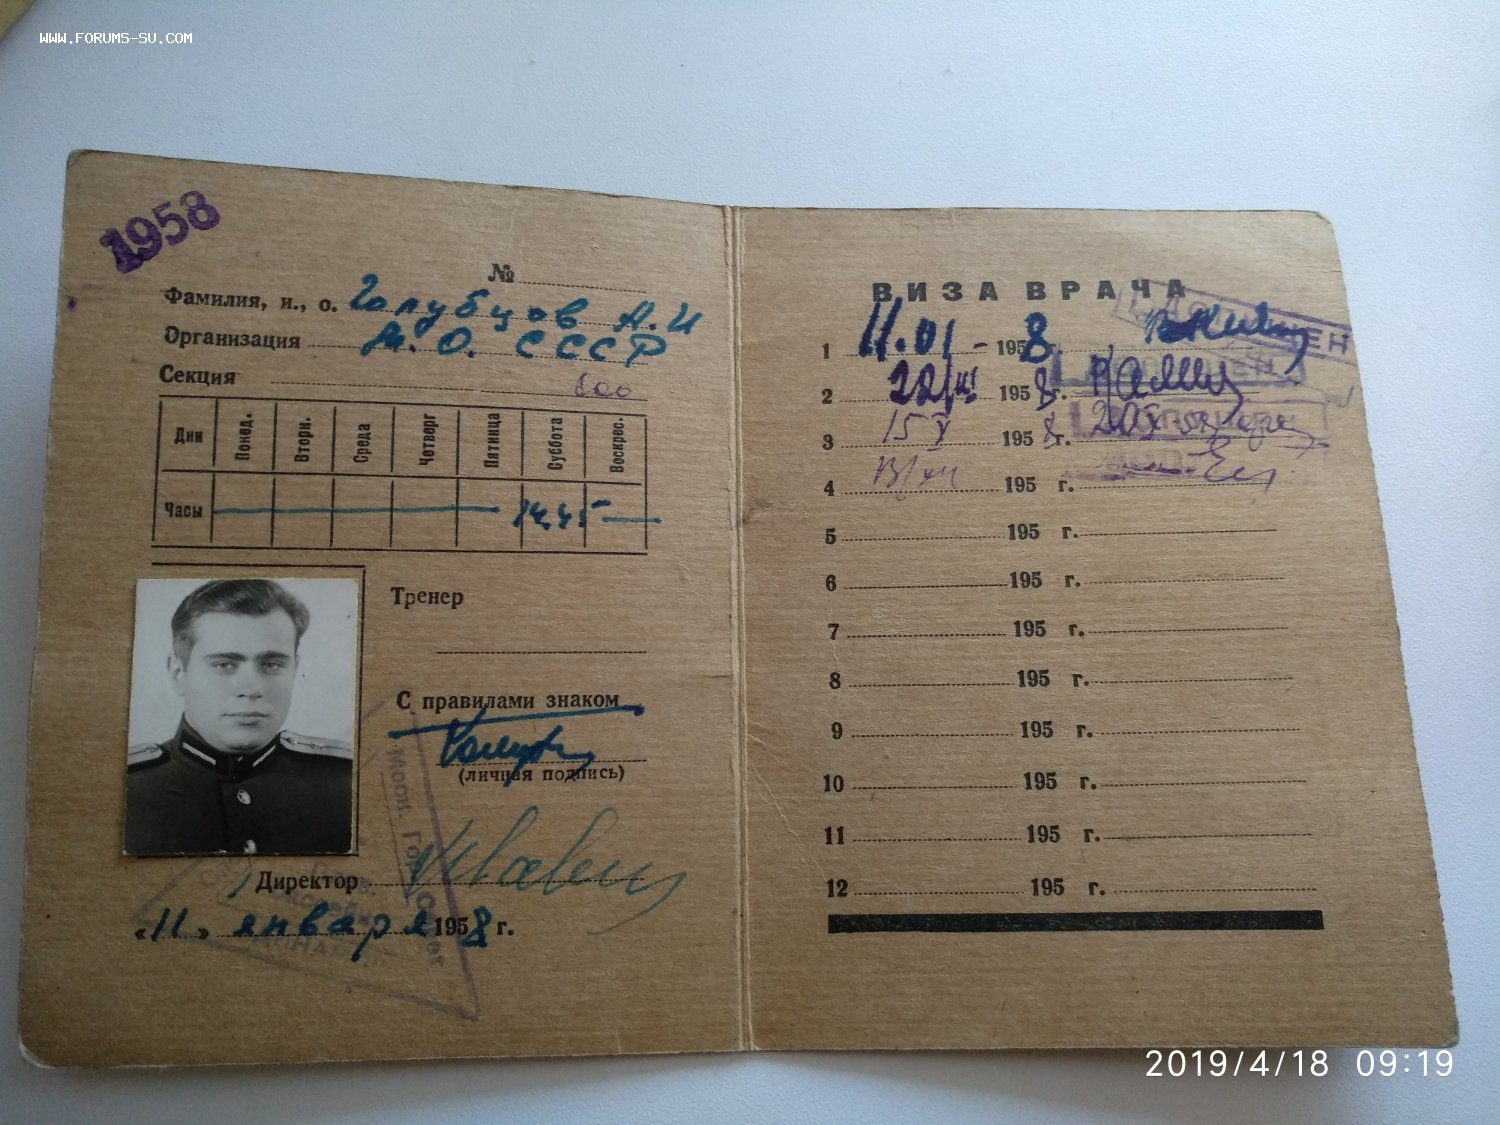 WWW.FORUMS-SU.COM
1958
№
Фамилия, и., о. Голубцов А.И
Организация М.О. СССР
Секция
Дни Понед. Вторн. Среда Четверг Пятница Суббота Воскрес.
Часы 14.45
Тренер
С правилами знаком
(личная подпись)
Директор
«11» января 1958 г.
ВИЗА ВРАЧА
1 11.01 - 1958 г.
2 22/III 1958 г.
3 15 X 1958 г.
4 195 г.
5 195 г.
6 195 г.
7 195 г.
8 195 г.
9 195 г.
10 195 г.
11 195 г.
12 195 г.
2019/4/18 09:19